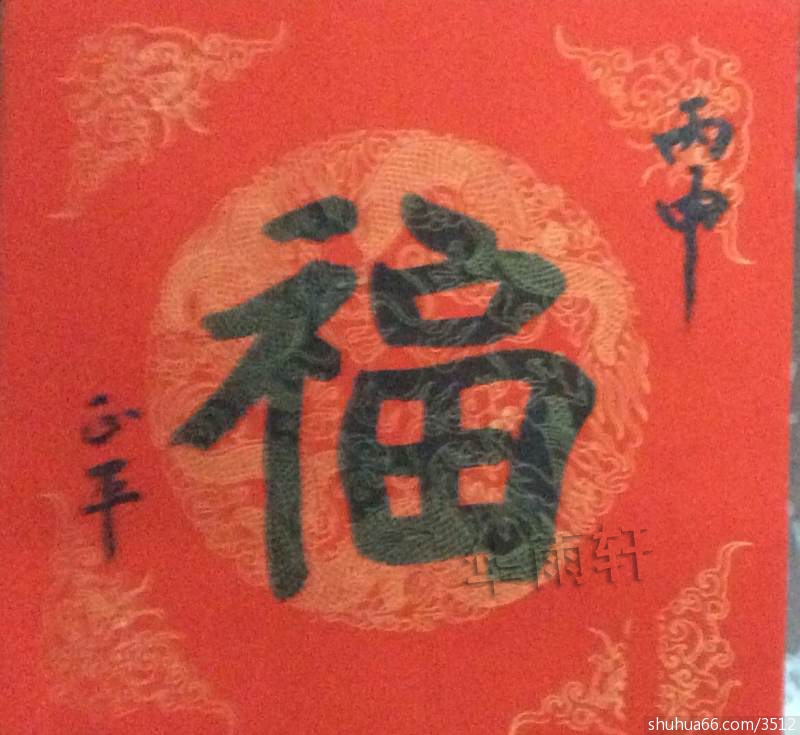 丙申
福
正平
华雨轩
shuhua66.com/3512